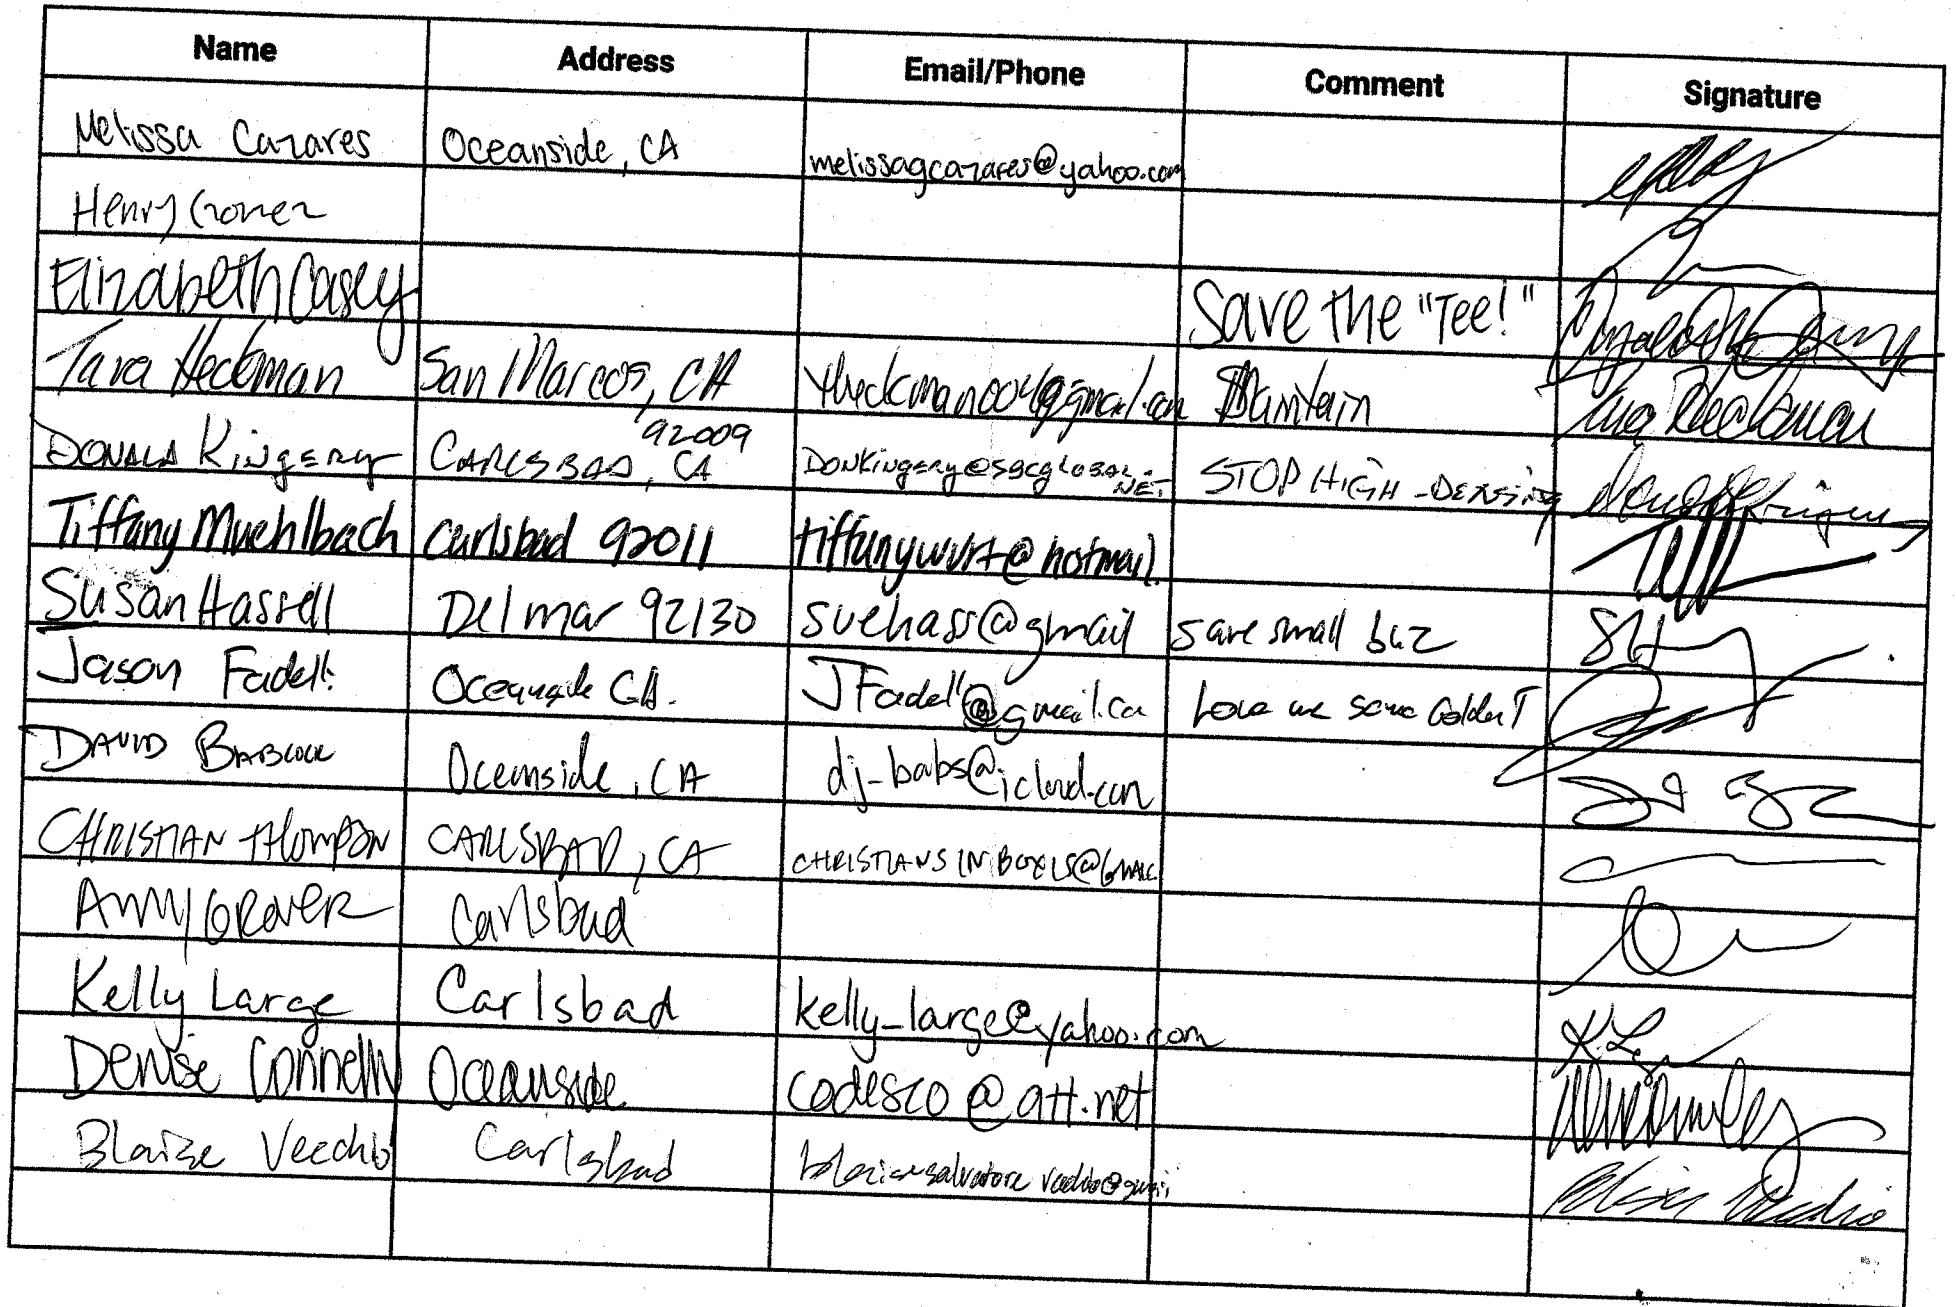 Name Address Email/Phone Comment Signature
Melissa Cazares Oceanside, CA melissagcazares@yahoo.com
Henry
Elizabeth Casey Save the "Tee!"
Tara Heckman San Marcos, CA theckman004@gmail.com Maintain
92009
DONALD Kingery CARLSBAD, CA DONKingery@SBCgLOBAL.NET STOP HIGH-DENSITY
Tiffany Muehlbach Carlsbad 92011 tiffanywurt@hotmail.
Susan Hassell Del mar 92130 suehass@gmail save small buz
Jason Fadell: Oceanside CA. JFadell@gmail.com Love me some Golden T
DAVID BABCOCK Oceanside, CA dj-babs@icloud.com
CHRISTIAN THOMPSON CARLSBAD, CA CHRISTIANSINBOXES@GMAIL
Amy GROVER Carlsbad
Kelly Large Carlsbad kelly_large@yahoo.com
Denise Connelly Oceanside codesco@att.net
Blaise Vecchio Carlsbad